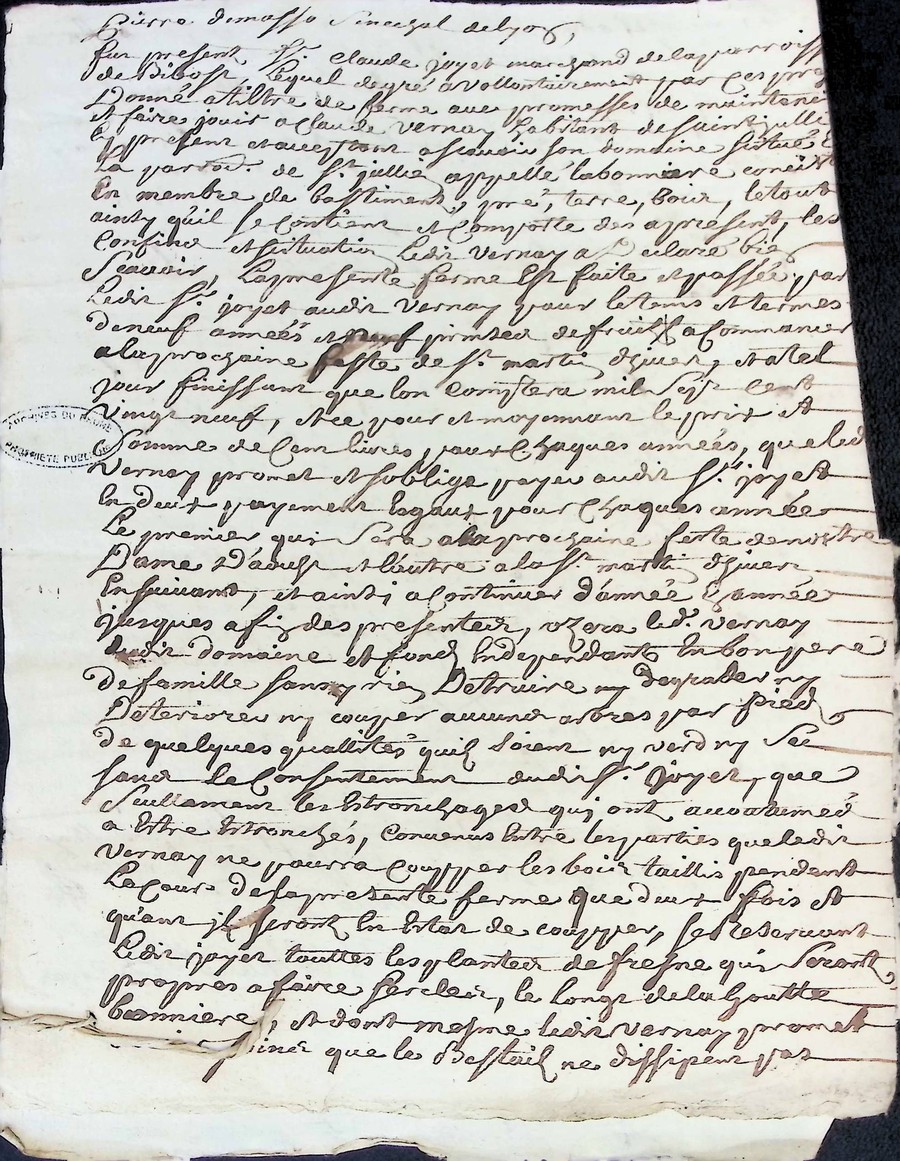 Pierre demasso Senechal delyon,
fut present Sr. Claude joyet marchand delaparroiss
de Bibost, Lequel degré avollontairement par Ces pres
Donné atiltre de ferme avec promesses de maintenir
et faire jouir a Claude Vernay habitant desaint jullie
Icy present et acceptant ascavoir son domaine situé
La parrod. de St. jullie appellé labonniere consist
En membre de bastiments, pré, terre, bois, letout
ainsy quil se Contient et Comporte des apresent, les
Confins et situation Ledit Vernay a declaré bien
Scavoir, Lapresente ferme Est faite et passée par
Ledit Sr. joyet audit Vernay pour letems et termes
deneuf années et neuf prinses defruits aCommancer
alaprochaine feste de St. martin dhiver, et atel
jour finissant que lon Comptera mil sept Cent
Vingt neuf, et ce pour et moyennant leprix et
Somme de Cent livres, pour Chaques années, queled
Vernay promet et soblige payer audit Sr. joyet
En deux payement Esgaux pour Chaques année
Le premier qui Sera alaprochaine feste denostre
Dame D'aoust et lautre alaSt. martin dhiver
Ensuivant, et ainsi aContinuer d'année En année
jusques afin des presentes, uzera led. Vernay
dudit domaine et fonds Independants En bon pere
defamille sans y rien Detruire ny degrader ny
Deteriorer ny couper aucuns arbres par pied
de quelques quallités quils soient ny verd ny Sec
sans le Consentement dudit Sr. joyet, que
Seullement les Estronchages qui ont accoutumés
a Estre Estronchés, Convenus Entre lesparties queledit
Vernay ne pourra Coupper les bois taillis pendent
Le Cours delapresente ferme que deux fois et
quant ils seront En Estat de coupper, se reservant
Ledit joyet touttes les plantes de fresne qui Seront
propres afaire sercles, le long de la Goutte
bonniere, et dont mesme ledit Vernay promet
que le Bestail ne dissipent pas
ARCHIVES DU RHONE
PROPRIETE PUBLIQUE